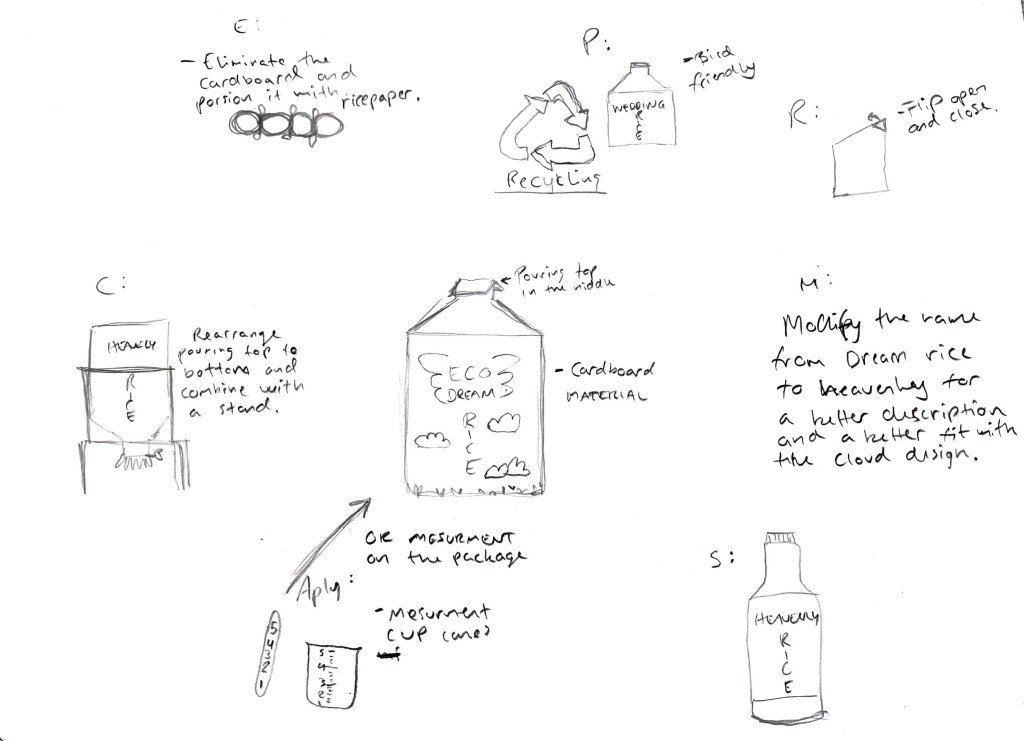 E:
- Eliminate the
cardboard and
porsion it with ricepaper.
P:
- Bird
friendly
WEDDING
RICE
Recykling
R:
- Flip open
and close.
C:
Rearrange
pouring top to
bottom and
combine with
a stand.
HEAVENLY
R
I
C
E
← Pouring top
in the middle
ECO
DREAM
R
I
C
E
- Cardboard
MATERIAL
M:
Modify the name
from Dream rice
to heavenly for
a better description
and a better fit with
the cloud design.
OR MESURMENT
on the package
Aply:
- Mesurment
CUP
5
4
3
2
1
5
4
3
2
1
S:
HEAVENLY
R
I
C
E